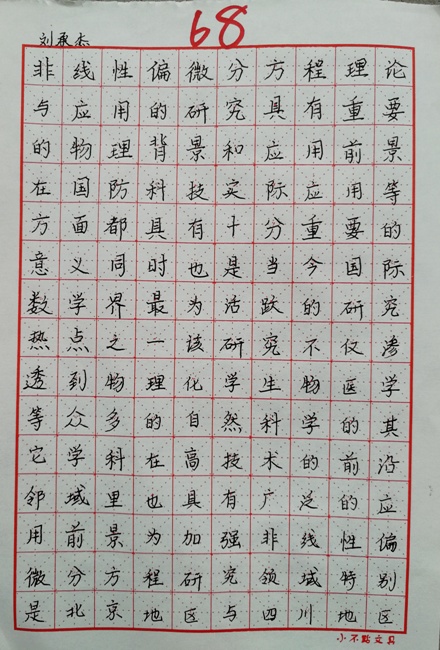 68
刘承杰
非线性偏微分方程理论
与应用的研究具有重要
的物理背景和应用前景
在国防科技实际应用等
方面都具有十分重要的
意义同时也是当今国际
数学界最为活跃的研究
热点之一该研究不仅渗
透到物理化学生物医学
等众多的自然科学的其
它学科在高技术的前沿
邻域里也具有广泛的应
用前景为加强非线性偏
微分方程研究领域特别
是北京地区与四川地区
小不點文具